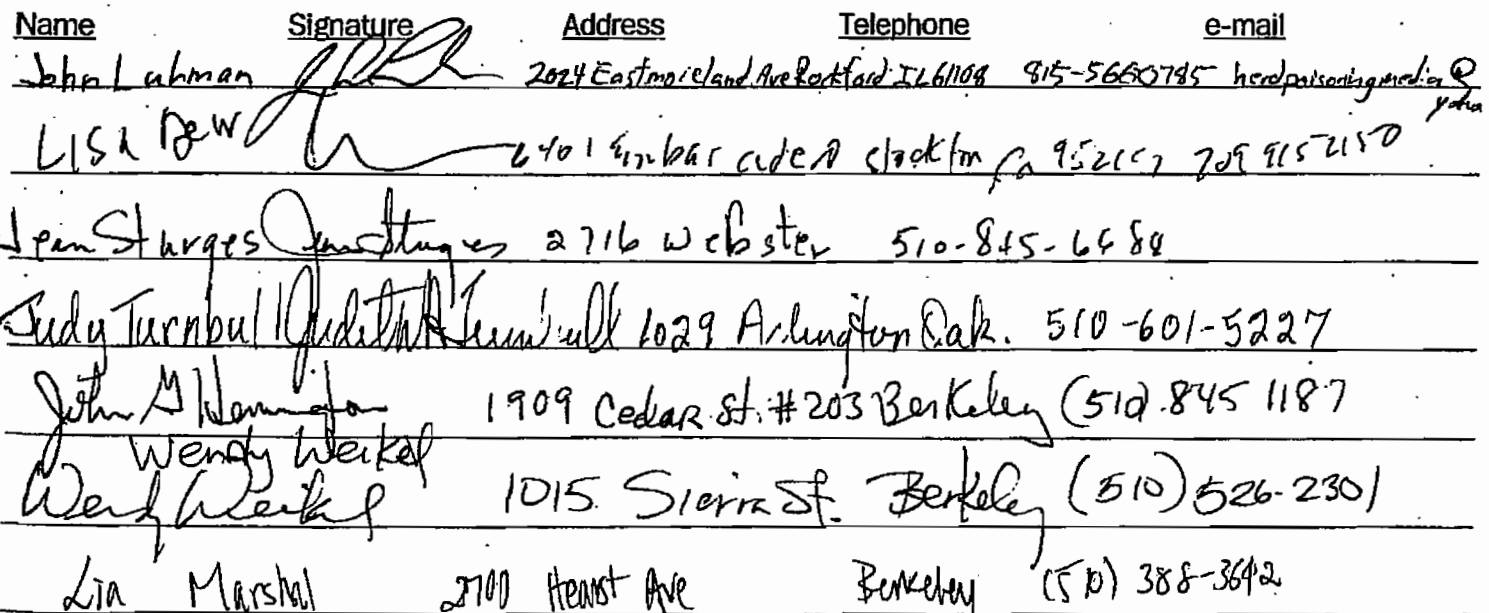 Name Signature Address Telephone e-mail
John Luhman 2024 Eastmoreland Ave Rockford IL 61108 815-5660785 herdpoisoningmedia@
yahoo
LISA Dew 6401 Stockton Ca 209 9152150
Jean Sturges Jean Sturges 2716 Webster 510-845-6484
Judy Turnbull Judith A Turnbull 1029 Arlington Oak. 510-601-5227
John 1909 Cedar St. #203 Berkeley (510) 845 1187
Wendy Weikel
Wendy Weikel 1015 Sierra St. Berkeley (510) 526-2301
Lia Marshal 2700 Hearst Ave Berkeley (510) 388-3642